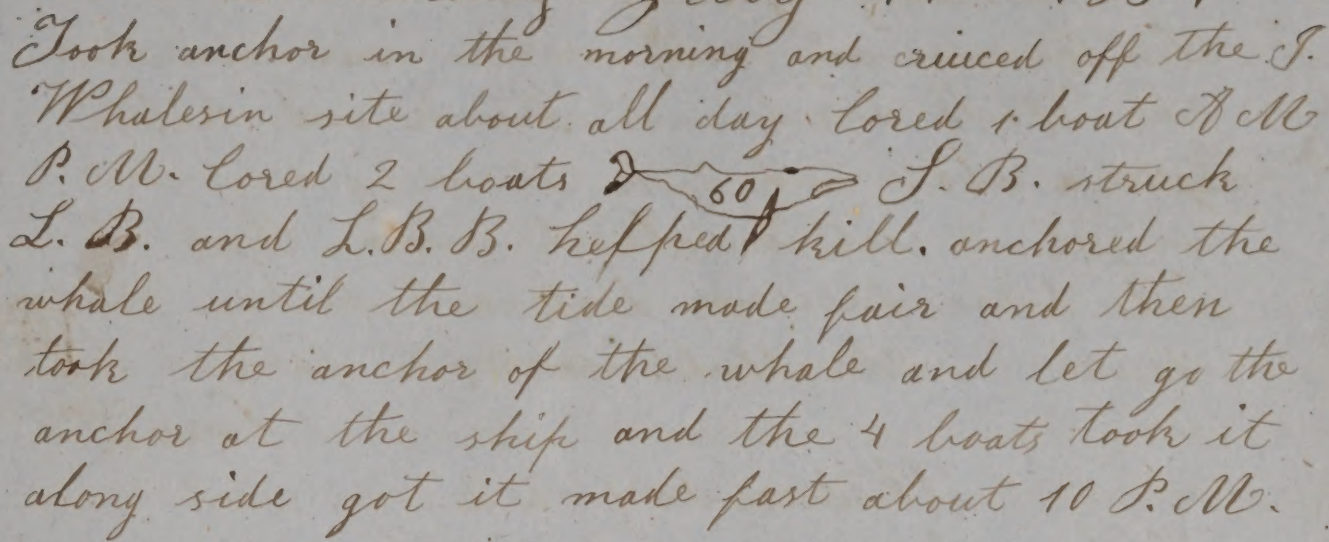 Took anchor in the morning and cruced off the I.
Whalesin site about all day. lored 1 boat A M
P. M. lored 2 boats 60 S. B. struck
L. B. and L. B. B. helpped kill. anchored the
whale until the tide made fair and then
took the anchor of the whale and let go the
anchor at the ship and the 4 boats took it
along side got it made fast about 10 P. M.